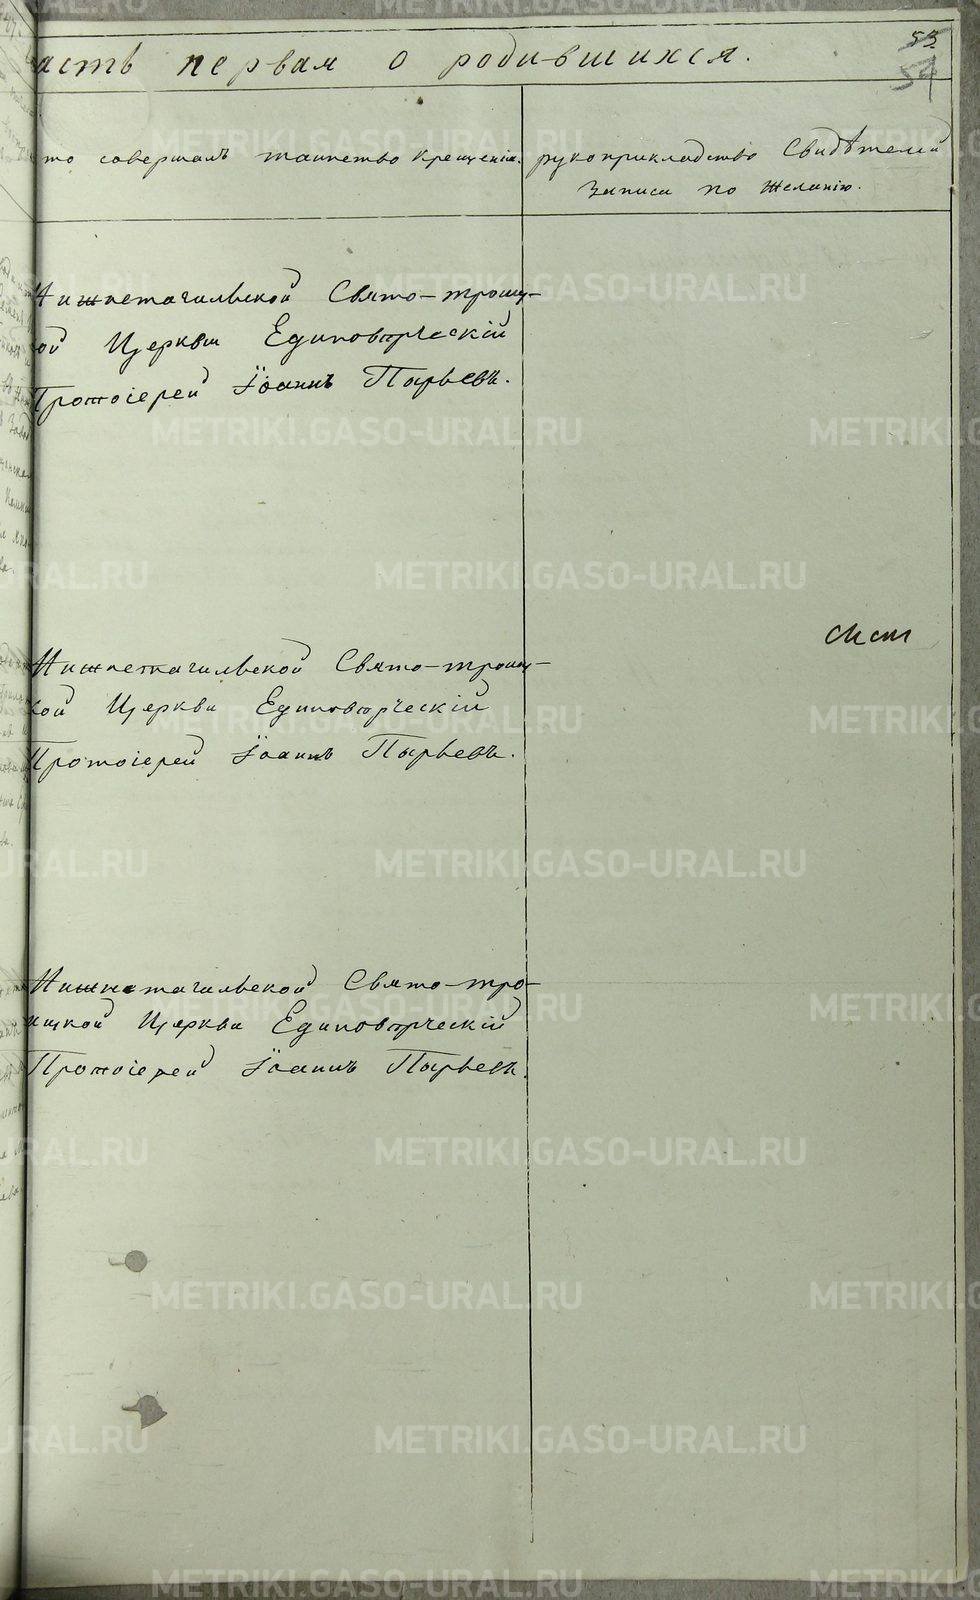 асть первая о родившихся.
53
54
то совершалъ таинство крещенія.
рукоприкладство Свидѣтелей
записи по желанію.
Нижнетагильской Свято-троиц-
кой Церкви Единовѣрческій
Протоіерей Іоаннъ Пырьевъ.
Нижнетагильской Свято-троиц-
кой Церкви Единовѣрческій
Протоіерей Іоаннъ Пырьевъ.
Нижнетагильской Свято-тро-
ицкой Церкви Единовѣрческій
Протоіерей Іоаннъ Пырьевъ.
METRIKI.GASO-URAL.RU